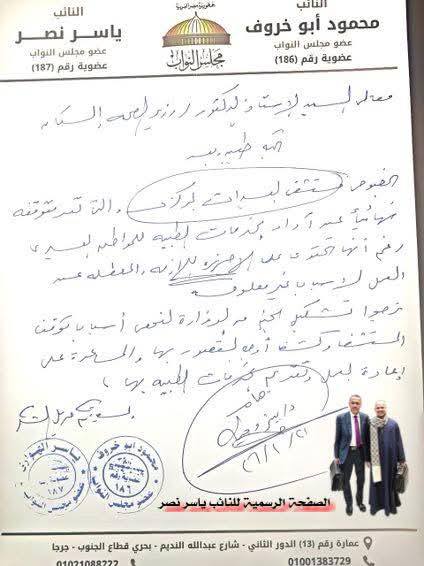 النائب
محمود أبو خروف
عضو مجلس النواب
عضوية رقم (186)
مجلس النواب
النائب
ياسر نصر
عضو مجلس النواب
عضوية رقم (187)
معالى السيد الاستاذ الدكتور / وزير الصحة والسكان
تحية طيبة وبعد
الخصوص مستشفى العسيرات المركزى والتى تعد متوقفة
نهائياً عن أداء الخدمات الطبية للمواطن
رغم أنها تحتوى على الأجهزة اللازمة والمعطلة عن
العمل لأسباب غير معلومة
نرجوا تشكيل لجنة من الوزارة لفحص أسباب توقف
المستشفى وكشف أوجه القصور بها والمساعدة على
إعادة العمل وتقديم الخدمات الطبية بها
ولسيادتكم جزيل الشكر
هام
٢٦/١/٢١
ياسر
١٨٧
عضو مجلس النواب
محمود أبو خروف
١٨٦
عضو مجلس النواب
الصفحة الرسمية للنائب ياسر نصر
عمارة رقم (13) الدور الثاني - شارع عبدالله النديم - بحري قطاع الجنوب - جرجا
01021088222
01001383729